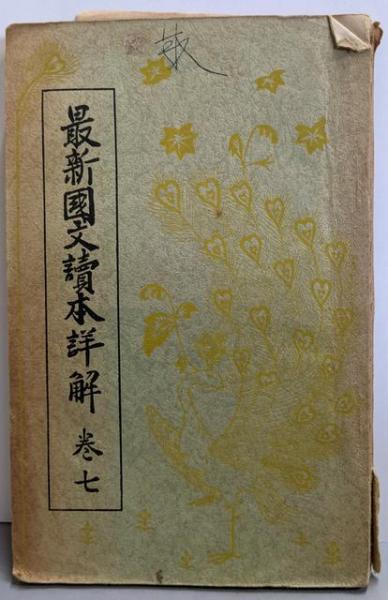 最新國文讀本詳解 巻七